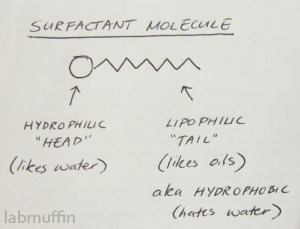 SURFACTANT MOLECULE
HYDROPHILIC
"HEAD"
(likes water)
LIPOPHILIC
"TAIL"
(likes oils)
aka HYDROPHOBIC
(hates water)
labmuffin